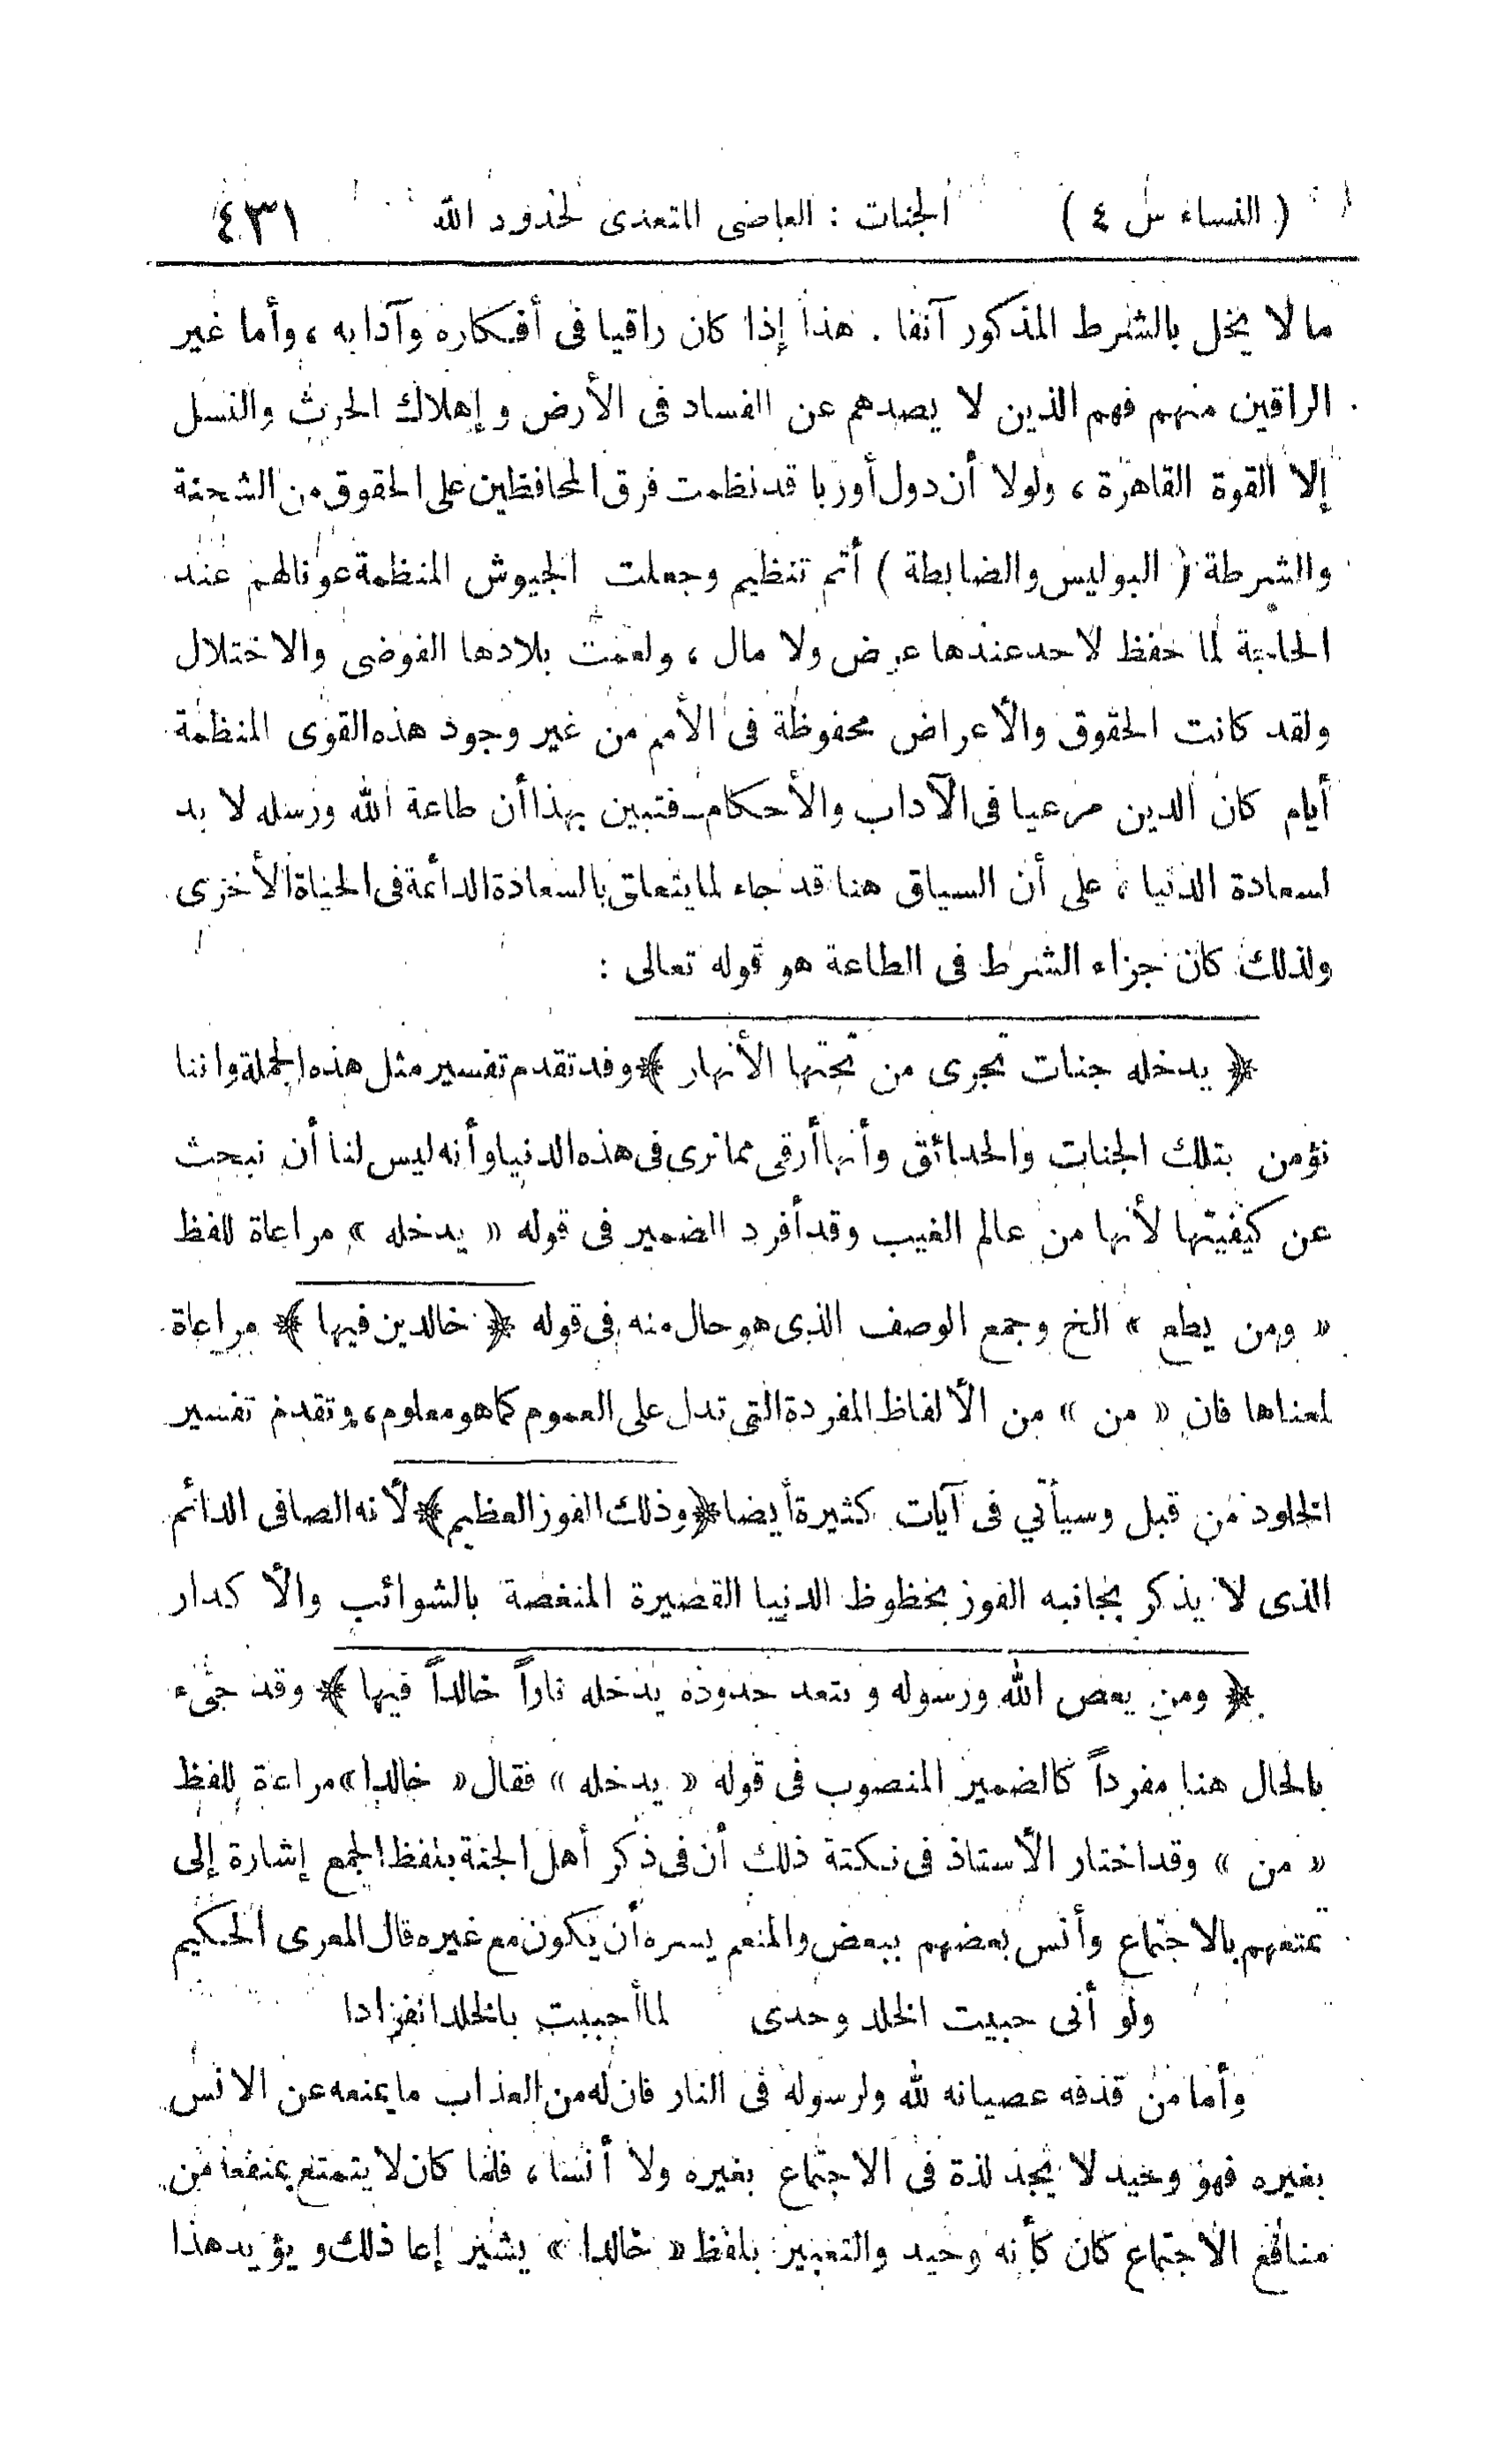 ( النساء س ٤ ) الجنات : العاصى المتعدى لحدود الله ٤٣١
ما لا يخل بالشرط المذكور آنفا . هذا إذا كان راقيا فى أفكاره وآدابه ، وأما غير
الراقين منهم فهم الذين لا يصدهم عن الفساد فى الأرض وإهلاك الحرث والنسل
إلا القوة القاهرة ، ولولا أن دول أوربا قد نظمت فرق المحافظين على الحقوق من الشحنة
والشرطة ( البوليس والضابطة ) أتم تنظيم وجعلت الجيوش المنظمة عونا لهم عند
الحاجة لما حفظ لاحد عندها عرض ولا مال ، ولعمت بلادها الفوضى والاختلال
ولقد كانت الحقوق والأعراض محفوظة فى الأمم من غير وجود هذه القوى المنظمة
أيام كان الدين مرعيا فى الآداب والأحكام ــ فتبين بهذا أن طاعة الله ورسله لا بد
لسعادة الدنيا ، على أن السياق هنا قد جاء لما يتعلق بالسعادة الدائمة فى الحياة الأخرى
ولذلك كان جزاء الشرط فى الطاعة هو قوله تعالى :
﴿ يدخله جنات تجرى من تحتها الأنهار ﴾ وقد تقدم تفسير مثل هذه الجملة واننا
نؤمن بتلك الجنات والحدائق وأنها أرقى مما نرى فى هذه الدنيا وأنه ليس لنا أن نبحث
عن كيفيتها لأنها من عالم الغيب وقد أفرد الضمير فى قوله « يدخله » مراعاة للفظ
« ومن يطع » الخ وجمع الوصف الذى هو حال منه فى قوله ﴿ خالدين فيها ﴾ مراعاة
لمعناها فان « من » من الألفاظ المفردة التى تدل على العموم كما هو معلوم ، وتقدم تفسير
الخلود من قبل وسيأتي فى آيات كثيرة أيضا ﴿ وذلك الفوز العظيم ﴾ لأنه الصافى الدائم
الذى لا يذكر بجانبه الفوز بحظوظ الدنيا القصيرة المنغصة بالشوائب والأكدار
﴿ ومن يعص الله ورسوله ويتعد حدوده يدخله ناراً خالداً فيها ﴾ وقد جىء
بالحال هنا مفرداً كالضمير المنصوب فى قوله « يدخله » فقال « خالدا » مراعاة للفظ
« من » وقد اختار الأستاذ فى نكتة ذلك أن فى ذكر أهل الجنة بلفظ الجمع إشارة إلى
تمتعهم بالاجتماع وأنس بعضهم ببعض والمنعم يسره أن يكون مع غيره قال المعرى الحكيم
ولو أنى حبيت الخلد وحدى لما أحببت بالخلد انفرادا
وأما من قذفه عصيانه لله ولرسوله فى النار فان له من العذاب ما يمنعه عن الانس
بغيره فهو وحيد لا يجد لذة فى الاجتماع بغيره ولا أنسا ، فلما كان لا يتمتع بمنفعة من
منافع الاجتماع كان كأنه وحيد والتعبير بلفظ « خالدا » يشير إعا ذلك ويؤيد هذا